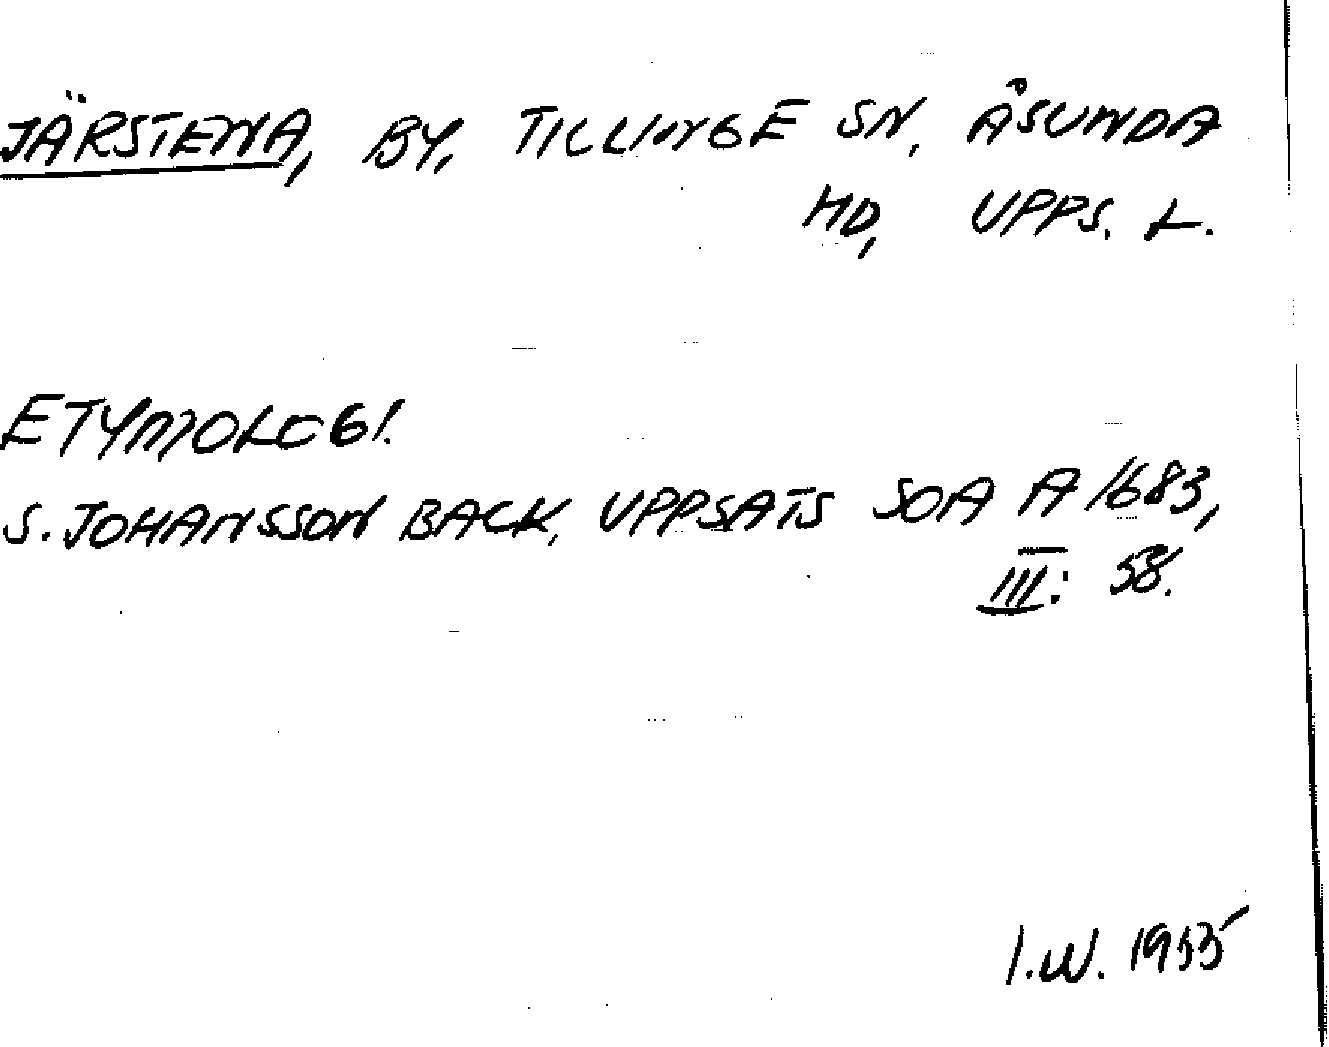 JÄRSTENA, BY, TILLINGE SN, ÅSUNDA
HD, UPPS. L.
ETYMOLOGI.
S. JOHANSSON BACK, UPPSATS SOA A 1683,
III: 58.
I.W. 1955